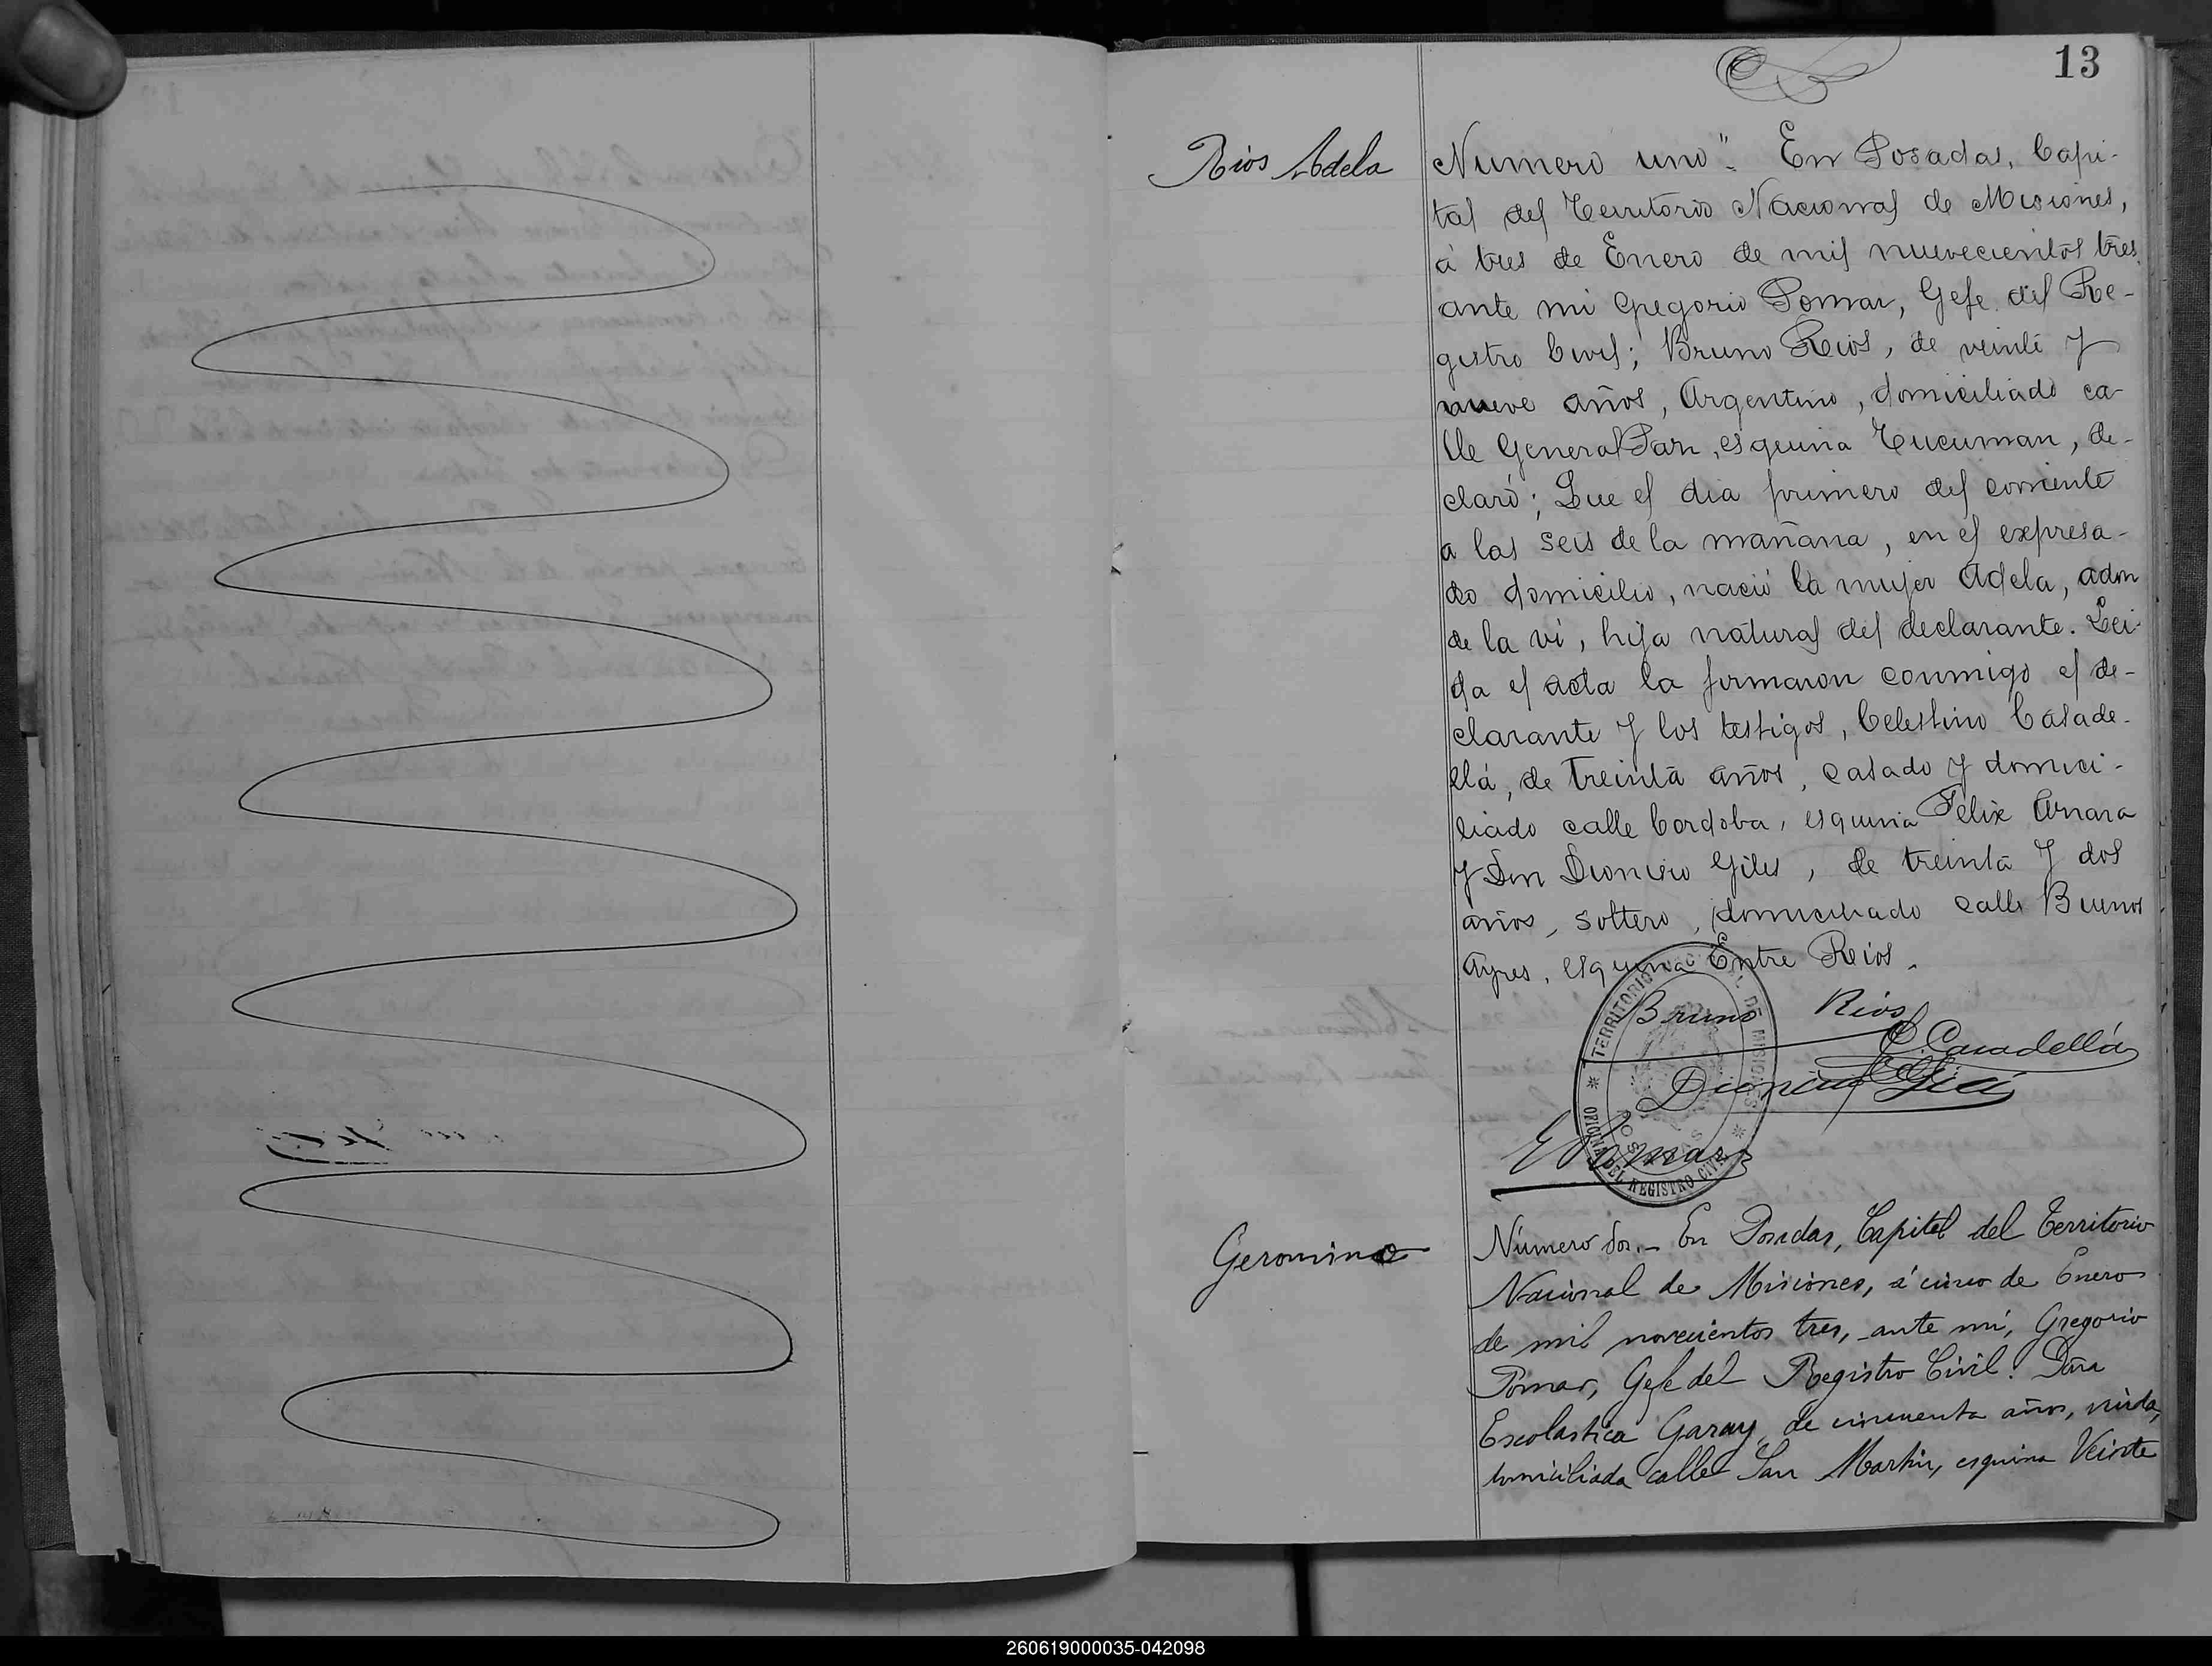 13
Rios Adela
Numero uno". En Posadas, Capi-
tal del Territorio Nacional de Misiones,
á tres de Enero de mil nuevecientos tres,
ante mi Gregorio Pomar, Gefe del Re-
gistro Civil; Bruno Rios, de veinti y
nueve años, Argentino, domiciliado ca-
lle General Paz, esquina Tucuman, de-
claró; Que el dia primero del corriente
a las seis de la mañana, en el expresa-
do domicilio, nació la mujer Adela, adon
de la ví, hija natural del declarante. Lei-
da el acta la firmaron conmigo el de-
clarante y los testigos, Celestino Casade-
llá, de treinta años, casado y domici-
liado calle Cordoba, esquina Felix Azara
y Don Dionisio Giles, de treinta y dos
años, soltero, domiciliado calle Buenos
Ayres, esquina Entre Rios.
Bruno Rios
C. Casadellá
Dionisio
Pomar
TERRITORIO NACIONAL DE MISIONES
OFICINA DEL REGISTRO CIVIL
POSADAS
Geronimo
Número dos.- En Posadas, Capital del Territorio
Nacional de Misiones, á cinco de Enero
de mil novecientos tres, ante mí, Gregorio
Pomar, Gefe del Registro Civil: Doña
Escolastica Garay, de cincuenta años, viuda,
domiciliada calle San Martin, esquina Veinte
260619000035-042098